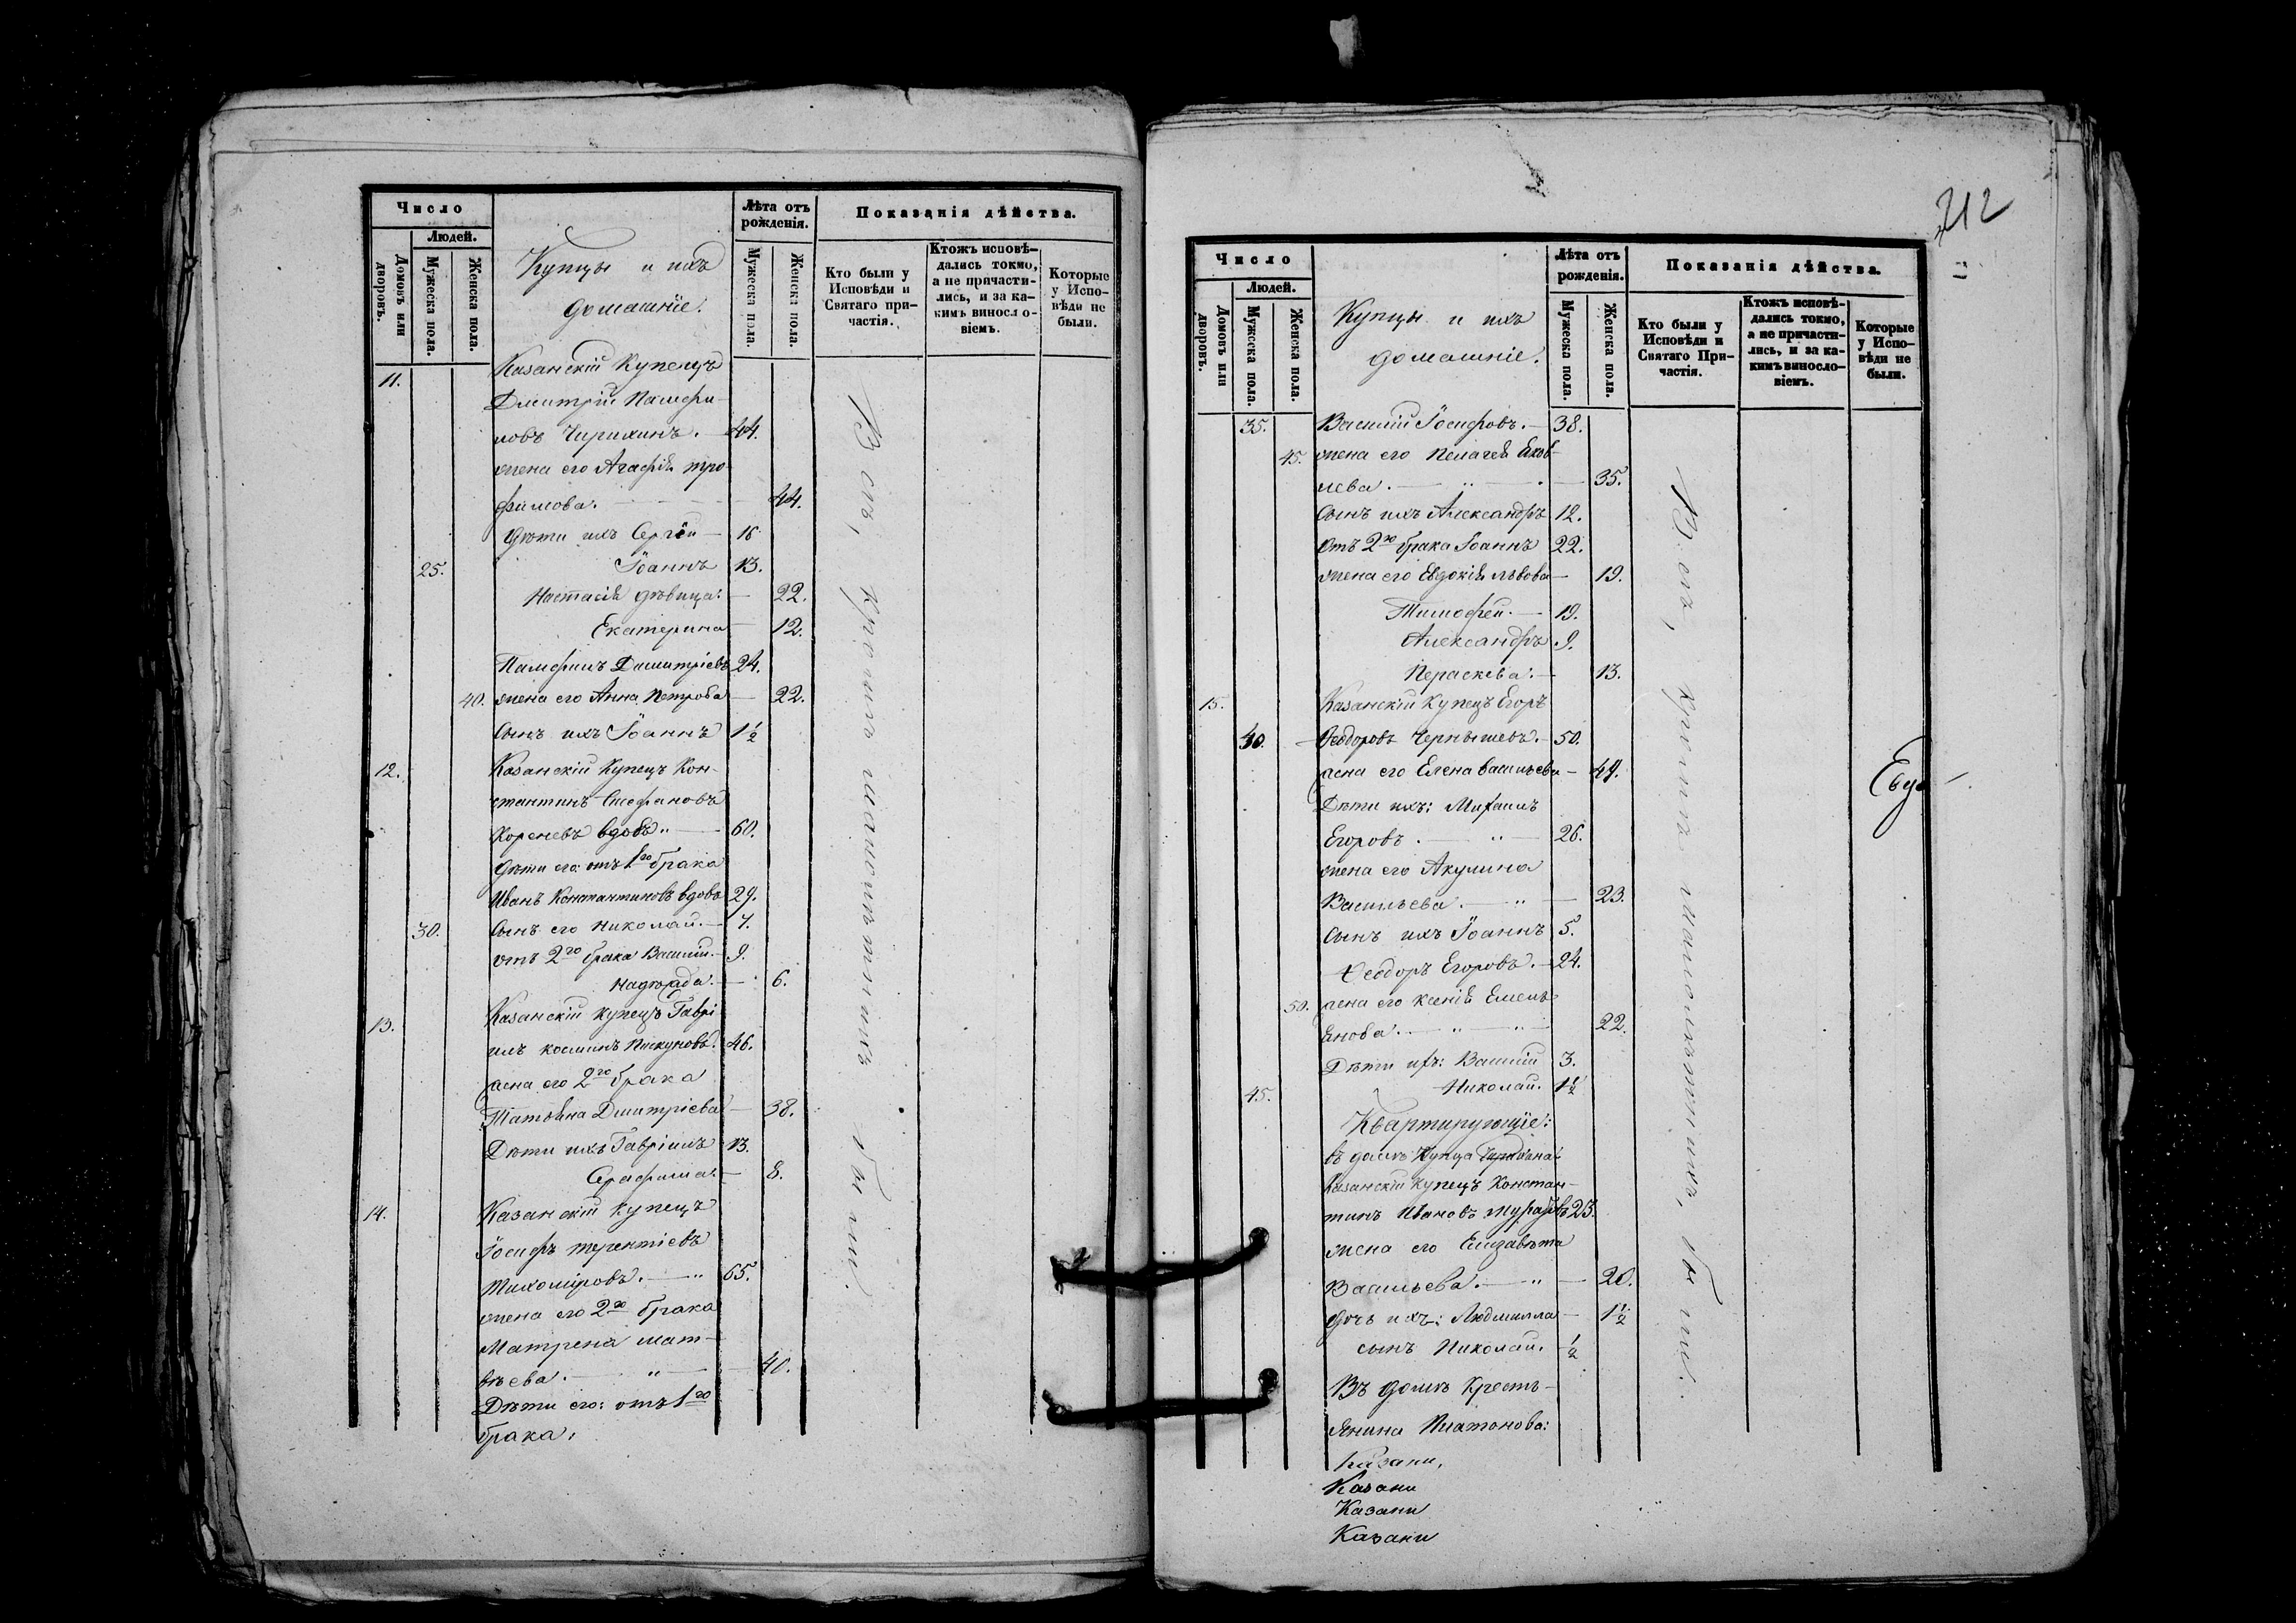 Число
Людей.
Домовъ или дворовъ.
Мужеска пола.
Женска пола.
Купцы и ихъ
домашніе.
Лѣта отъ рожденія.
Мужеска пола.
Женска пола.
Показанія дѣйства.
Кто были у Исповѣди и Святаго при-
частія.
Ктожъ исповѣ-
дались токмо,
а не причасти-
лись, и за ка-
кимъ винослo-
віемъ.
Которые
у Испо-
вѣди не
были.
11. Казанскій Купецъ
Дмитрій Памфи-
ловъ Чирихинъ. 44.
жена его Агафія тро-
фимова. 44.
Дѣти ихъ Сергѣй 16
25. Іоаннъ 13.
Настасія дѣвица. 22.
Екатерина 12.
Памфилъ Димитріевъ 24.
40. жена его Анна Петрова 22.
Сынъ ихъ Іоаннъ 1½
12. Казанскій Купецъ Кон-
стантинъ Стефановъ
Кореневъ вдовъ 60.
Дѣти его: отъ 1го брака
Иванъ Константиновъ вдовъ 29.
30. Сынъ его Николай. 7.
отъ 2го брака Василій. 9.
6.
13. Казанскій Купецъ Гаврі
илъ Косминъ Пискуновъ. 46.
жена его 2го брака
Татьяна Дмитріева 38.
Дѣти ихъ Гавріилъ 13.
Серафима. 8.
14. Казанскій Купецъ
Іосифъ терентіевъ
Тихоміровъ. 65.
жена его 2го брака
Матрена мат-
вѣева. 40.
Дѣти его: отъ 1го
брака,
Всѣ, кромѣ малолѣтнихъ были.
212
Число
Людей.
Домовъ или дворовъ.
Мужеска пола.
Женска пола.
Купцы и ихъ
домашніе.
Лѣта отъ рожденія.
Мужеска пола.
Женска пола.
Показанія дѣйства.
Кто были у
Исповѣди и
Святаго При-
частія.
Ктожъ исповѣ-
дались токмо,
а не причасти-
лись, и за ка-
кимъ винослo-
віемъ.
Которые
у Испо-
вѣди не
были.
35. Василій Іосифовъ. 38.
45. жена его Пелагея Яков-
лева. 35.
Сынъ ихъ Александръ 12.
Отъ 2го брака Іоаннъ 22.
жена его Евдокія львова 19.
Тимофей. 19.
Александръ 9.
Параскева. 13.
15. Казанскій Купецъ Егоръ
40. Ѳеодоровъ Чернышевъ. 50.
жена его Елена васильева 49.
Дѣти ихъ: Михаилъ
Егоровъ. 26.
жена его Акулина
Васильева. 23.
Сынъ ихъ Іоаннъ 5.
Ѳеодоръ Егоровъ. 24.
50. жена его Ксенія Емель
янова. 22.
Дѣти ихъ: Василій 3.
45. Николай. 1½
Квартирующіе:
въ домѣ Купца
Казанскій Купецъ Констан-
тинъ Ивановъ 23.
жена его Елизавета
Васильева. 20.
Дочь ихъ: Людмилла 1½
сынъ Николай. ½
Въ домѣ Кресть-
янина Платонова:
Казани,
Казани
Казани
Казани
Всѣ, кромѣ малолѣтнихъ, были.